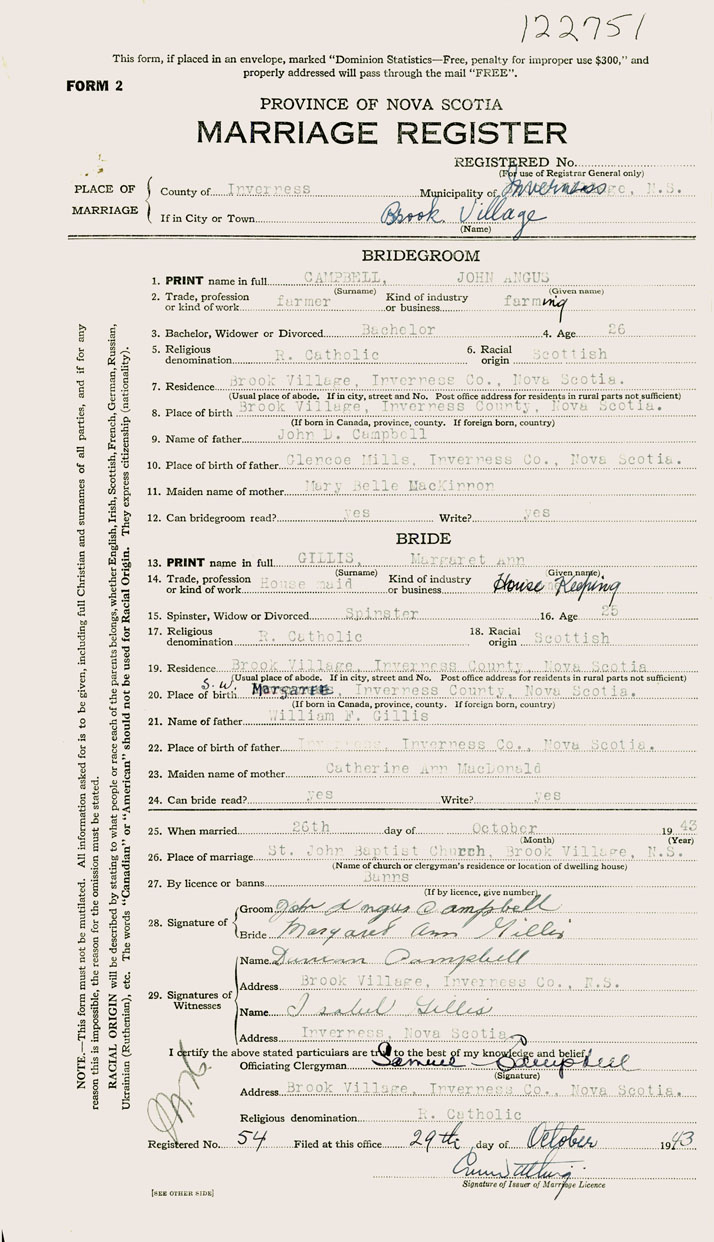 122751
This form, if placed in an envelope, marked "Dominion Statistics—Free, penalty for improper use $300," and
properly addressed will pass through the mail "FREE".
FORM 2
PROVINCE OF NOVA SCOTIA
MARRIAGE REGISTER
REGISTERED No.
(For use of Registrar General only)
PLACE OF MARRIAGE
County of Inverness Municipality of Inverness, N.S.
If in City or Town Brook Village
(Name)
BRIDEGROOM
1. PRINT name in full CAMPBELL, JOHN ANGUS
(Surname) (Given name)
2. Trade, profession or kind of work farmer Kind of industry or business farming
3. Bachelor, Widower or Divorced Bachelor 4. Age 26
5. Religious denomination R. Catholic 6. Racial origin Scottish
7. Residence Brook Village, Inverness Co., Nova Scotia.
(Usual place of abode. If in city, street and No. Post office address for residents in rural parts not sufficient)
8. Place of birth Brook Village, Inverness County, Nova Scotia.
(If born in Canada, province, county. If foreign born, country)
9. Name of father John D. Campbell
10. Place of birth of father Glencoe Mills, Inverness Co., Nova Scotia.
11. Maiden name of mother Mary Belle MacKinnon
12. Can bridegroom read? yes Write? yes
BRIDE
13. PRINT name in full GILLIS, Margaret Ann
(Surname) (Given name)
14. Trade, profession or kind of work House maid Kind of industry or business House Keeping
15. Spinster, Widow or Divorced Spinster 16. Age 25
17. Religious denomination R. Catholic 18. Racial origin Scottish
19. Residence Brook Village, Inverness County, Nova Scotia
(Usual place of abode. If in city, street and No. Post office address for residents in rural parts not sufficient)
20. Place of birth S.W. Margaree, Inverness County, Nova Scotia.
(If born in Canada, province, county. If foreign born, country)
21. Name of father William F. Gillis
22. Place of birth of father Inverness, Inverness Co., Nova Scotia.
23. Maiden name of mother Catherine Ann MacDonald
24. Can bride read? yes Write? yes
25. When married 26th day of October 1943
(Month) (Year)
26. Place of marriage St. John Baptist Church, Brook Village, N.S.
(Name of church or clergyman's residence or location of dwelling house)
27. By licence or banns Banns
(If by licence, give number)
28. Signature of
Groom John Angus Campbell
Bride Margaret Ann Gillis
29. Signatures of Witnesses
Name Duncan Campbell
Address Brook Village, Inverness Co., N.S.
Name Isabel Gillis
Address Inverness, Nova Scotia
I certify the above stated particulars are true to the best of my knowledge and belief.
Officiating Clergyman Samuel Campbell
(Signature)
Address Brook Village, Inverness Co., Nova Scotia.
Religious denomination R. Catholic
Registered No. 54 Filed at this office 29th day of October 1943
Signature of Issuer of Marriage Licence
[SEE OTHER SIDE]
NOTE.—This form must not be mutilated. All information asked for is to be given, including full Christian and surnames of all parties, and if for any
reason this is impossible, the reason for the omission must be stated.
RACIAL ORIGIN will be described by stating to what people or race each of the parents belongs, whether English, Irish, Scottish, French, German, Russian,
Ukrainian (Ruthenian), etc. The words "Canadian" or "American" should not be used for Racial Origin. They express citizenship (nationality).